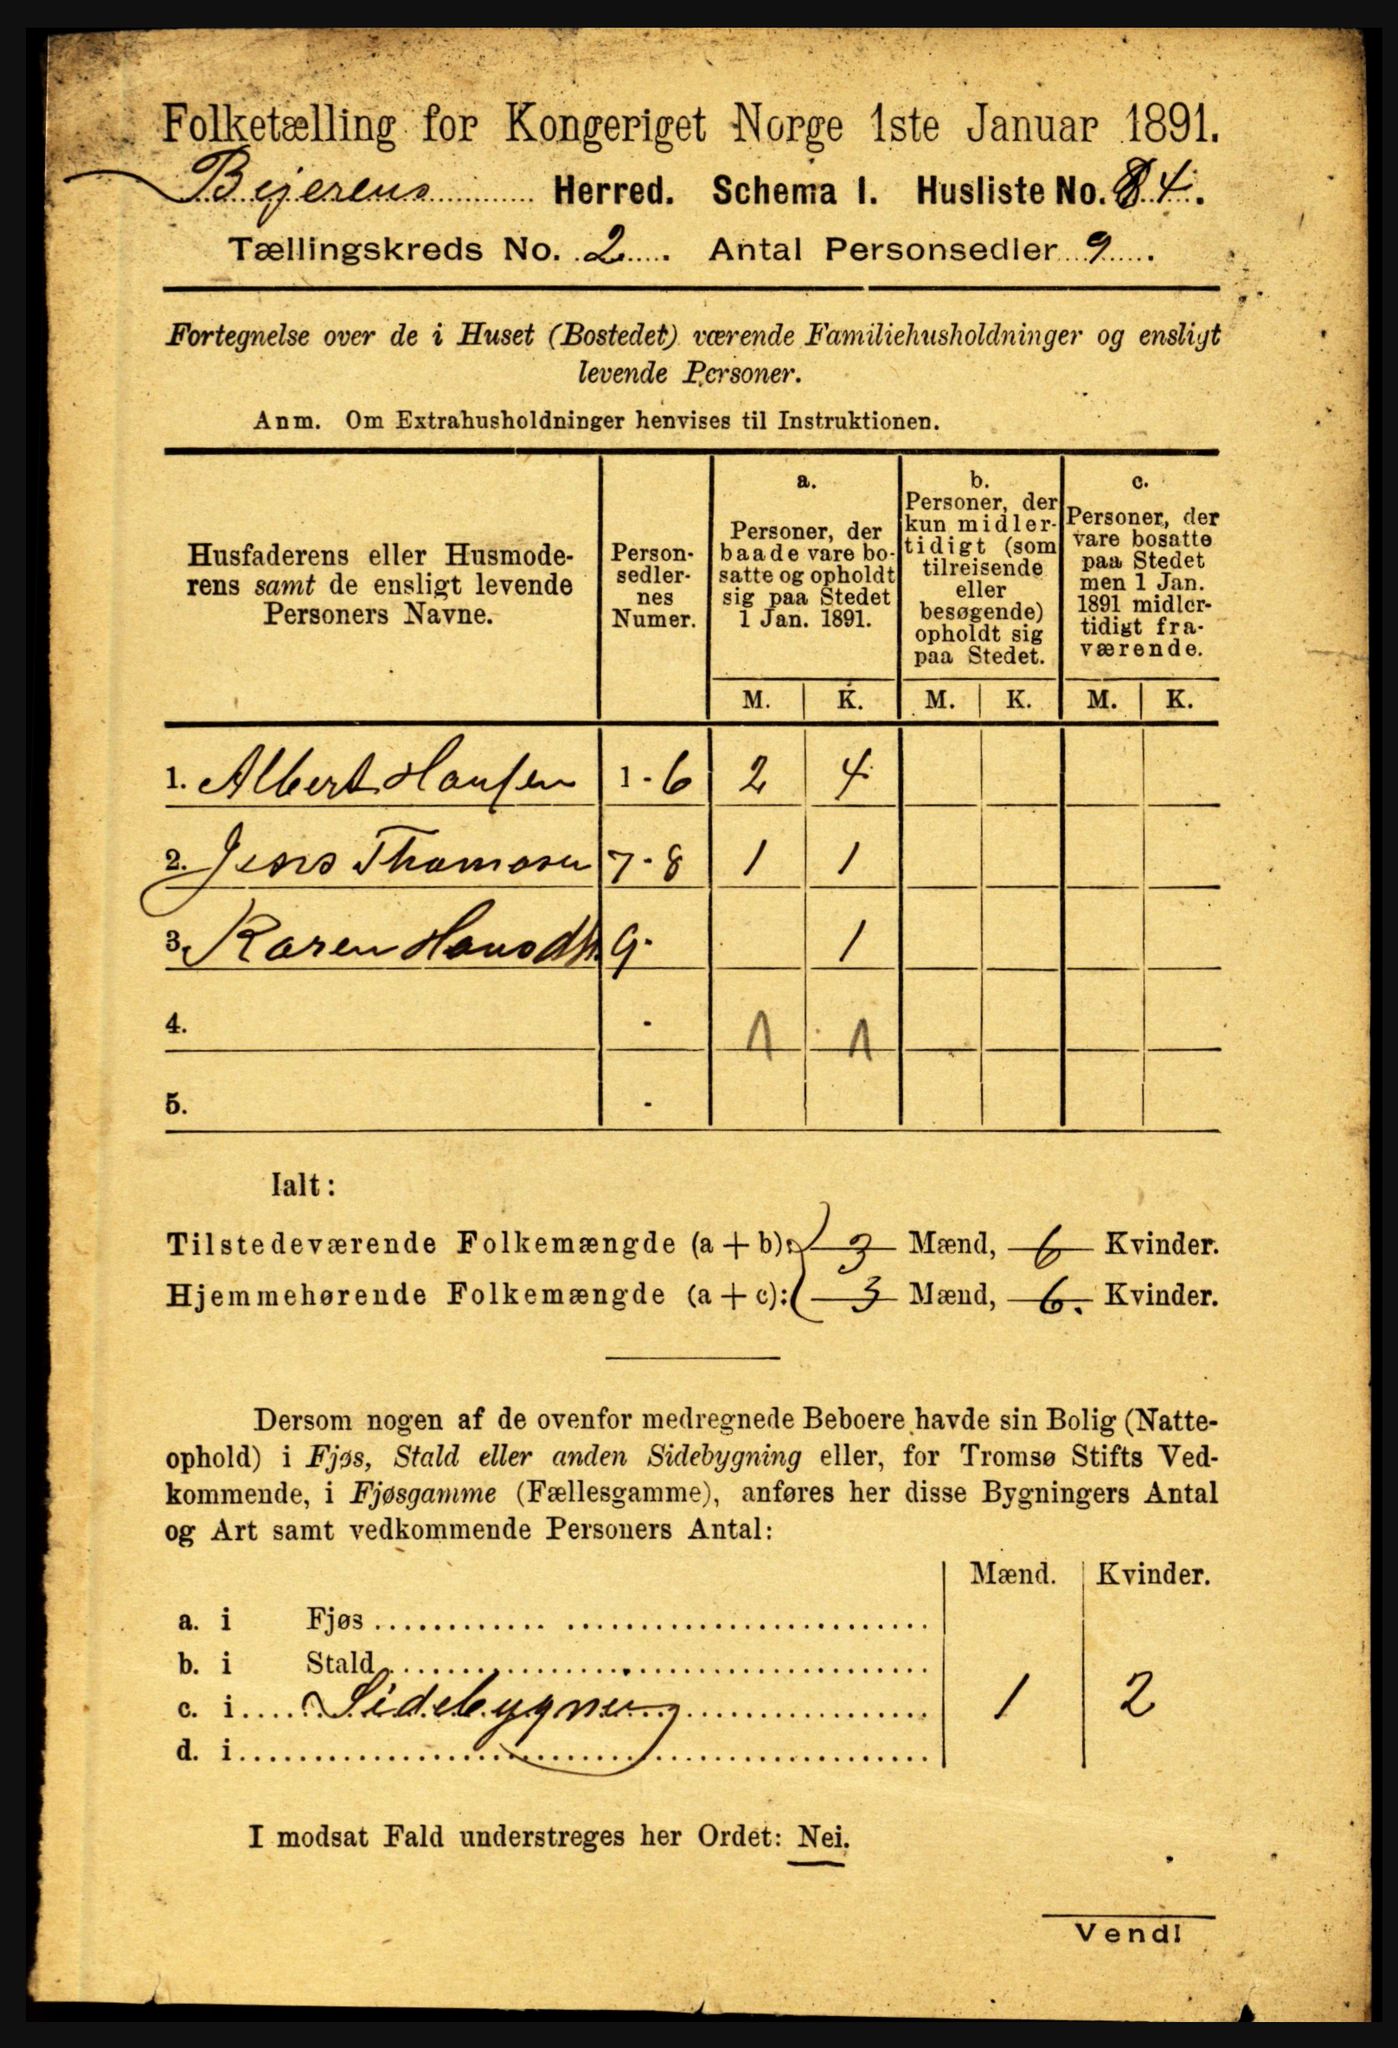 Folketælling for Kongeriget Norge 1ste Januar 1891.
Bejerens Herred. Schema I. Husliste No. 84.
Tællingskreds No. 2. Antal Personsedler 9.
Fortegnelse over de i Huset (Bostedet) værende Familiehusholdninger og ensligt
levende Personer.
Anm. Om Extrahusholdninger henvises til Instruktionen.
Husfaderens eller Husmode-
rens samt de ensligt levende
Personers Navne.
Person-
sedler-
nes
Numer.
a.
Personer, der
baade vare bo-
satte og opholdt
sig paa Stedet
1 Jan. 1891.
b.
Personer, der
kun midler-
tidigt (som
tilreisende
eller
besøgende)
opholdt sig
paa Stedet.
c.
Personer, der
vare bosatte
paa Stedet
men 1 Jan.
1891 midler-
tidigt fra-
værende.
M. K. M. K. M. K.
1. Albert Hansen 1 - 6 2 4
2. Jens Thomasen 7 - 8 1 1
3. Karen Hansdtr. 9 - 1
4. - 1 1
5. -
Ialt:
Tilstedeværende Folkemængde (a + b): 3 Mænd, 6 Kvinder.
Hjemmehørende Folkemængde (a + c): 3 Mænd, 6. Kvinder.
Dersom nogen af de ovenfor medregnede Beboere havde sin Bolig (Natte-
ophold) i Fjøs, Stald eller anden Sidebygning eller, for Tromsø Stifts Ved-
kommende, i Fjøsgamme (Fællesgamme), anføres her disse Bygningers Antal
og Art samt vedkommende Personers Antal:
Mænd. Kvinder.
a. i Fjøs
b. i Stald
c. i Sidebygning 1 2
d. i
I modsat Fald understreges her Ordet: Nei.
Vend!